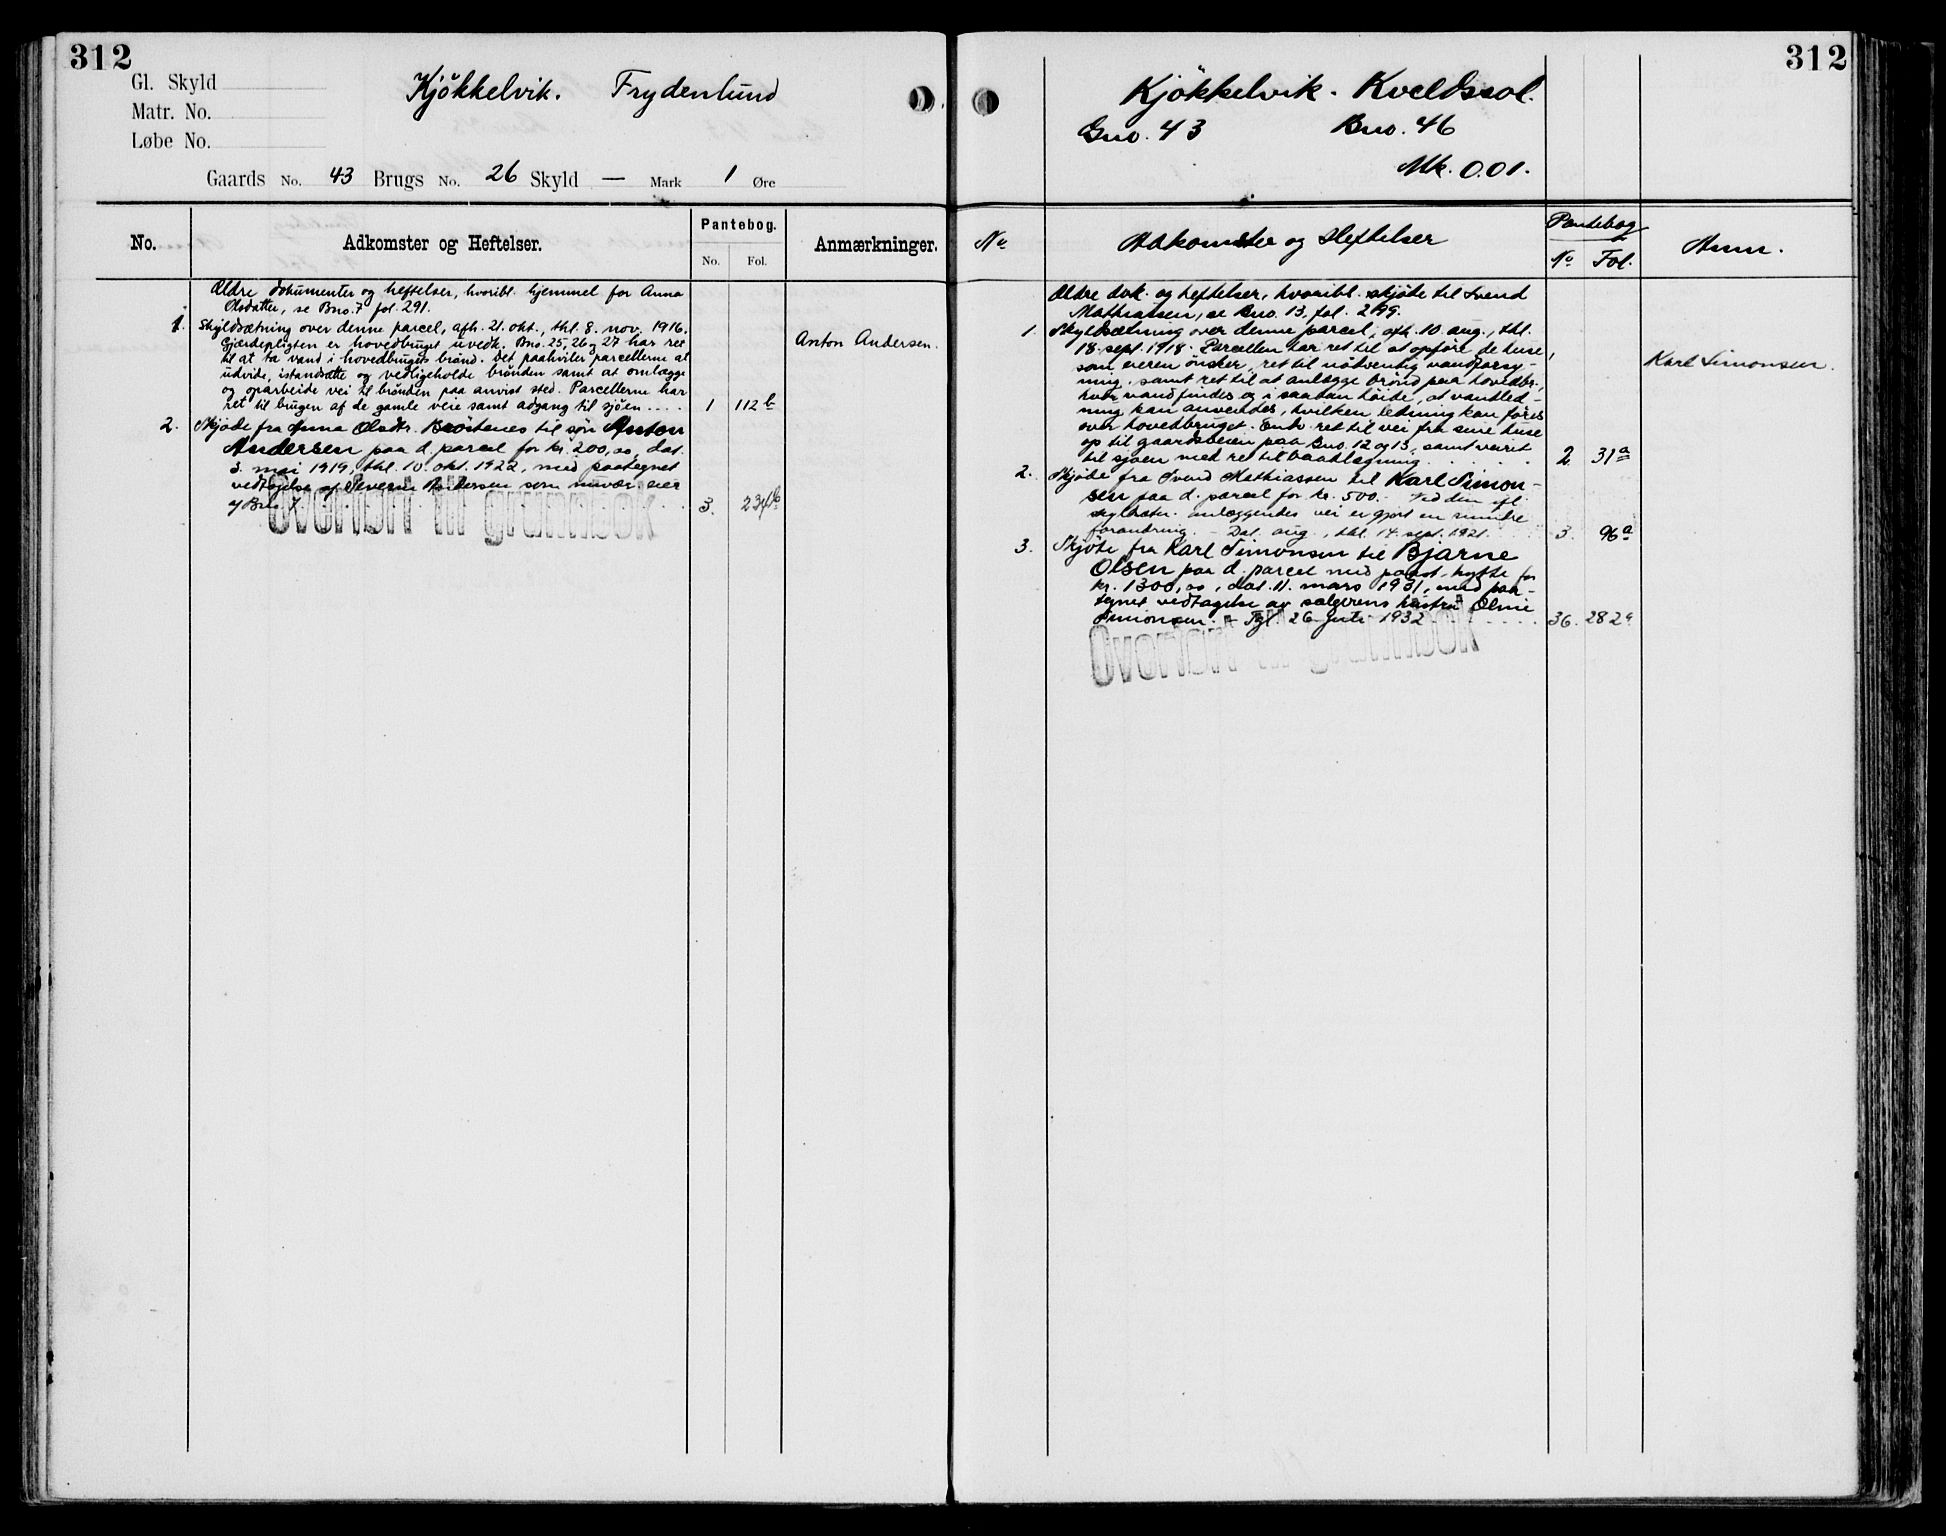 312
Gl. Skyld
Matr. No.
Løbe No.
Kjökkelvik. Frydenlund
Gaards No. 43 Brugs No. 26 Skyld — Mark 1 Øre
No.
Adkomster og Heftelser.
Pantebog.
No. Fol.
Anmærkninger.
Ældre dokumenter og heftelser, hvoribl. hjemmel for Anna
Olsdatter, se Bno. 7 fol. 291.
1. Skyldsætning over denne parcel, afh. 21. okt., thl. 8. nov. 1916.
Gjerdepligten er hovedbruget uvedk. Bno. 25, 26 og 27 har ret
til at ta vand i hovedbrugets brönd. Det paahviler parcellerne at
udvide, istandsætte og vedligeholde brönden samt at omlægge
og oparbeide vei til brönden paa anvist sted. Parcellerne har
ret til brugen af de gamle veie samt adgang til sjöen.... 1 112 b
Anton Andersen.
2. Skjøde fra Anna Olsdtr. Bröstenes til sön Anton
Andersen paa d. parcel for kr. 200,00, dat.
3. mai 1919, thl. 10. okt. 1922, med paategnet
vedtagelse af Severin Andersen som nuvær. eier
af Bno. 7. 3. 234 b
Overført til grunnbok
312
Kjökkelvik. Kveldssol.
Gno. 43 Bno. 46
Mk. 0.01.
No
Adkomster og Heftelser
Pantebog
No Fol.
Anm.
Ældre dok. og heftelser, hvoribl. skjöte til Svend
Mathiassen, se Bno. 13, fol. 299.
1. Skyldsætning over denne parcel, afh. 10. aug., thl.
18. sept. 1918. Parcellen har ret til at opföre de huse,
som eieren önsker, ret til nödvendig vandforsy-
ning, samt ret til at anlægge brönd paa hovedbr.,
hvor vand findes og i saadan höide, at vandled-
ning kan anvendes, hvilken ledning kan föres
over hovedbruget. Endv. ret til vei fra sine huse
op til gaardsveien paa Bno. 12 og 13, samt veiret
til sjöen med ret til baatlægning. 2 31 a
Karl Simonsen.
2. Skjöde fra Svend Mathiassen til Karl Simon-
sen paa d. parcel for kr. 500.- Ved den
anlæggendes vei er gjort en mindre
forandring. - Dat. aug., thl. 14. sept. 1921. 3. 96 a
3. Skjöte fra Karl Simonsen til Bjarne
Olsen paa d. parcel med paast. hytte for
kr. 1300,00, dat. 11. mars 1931, med paa-
tegnet vedtagelse av sælgerens hustru Oline
Simonsen. - Tgl. 26 juli 1932 36. 282 a
Overført til grunnbok